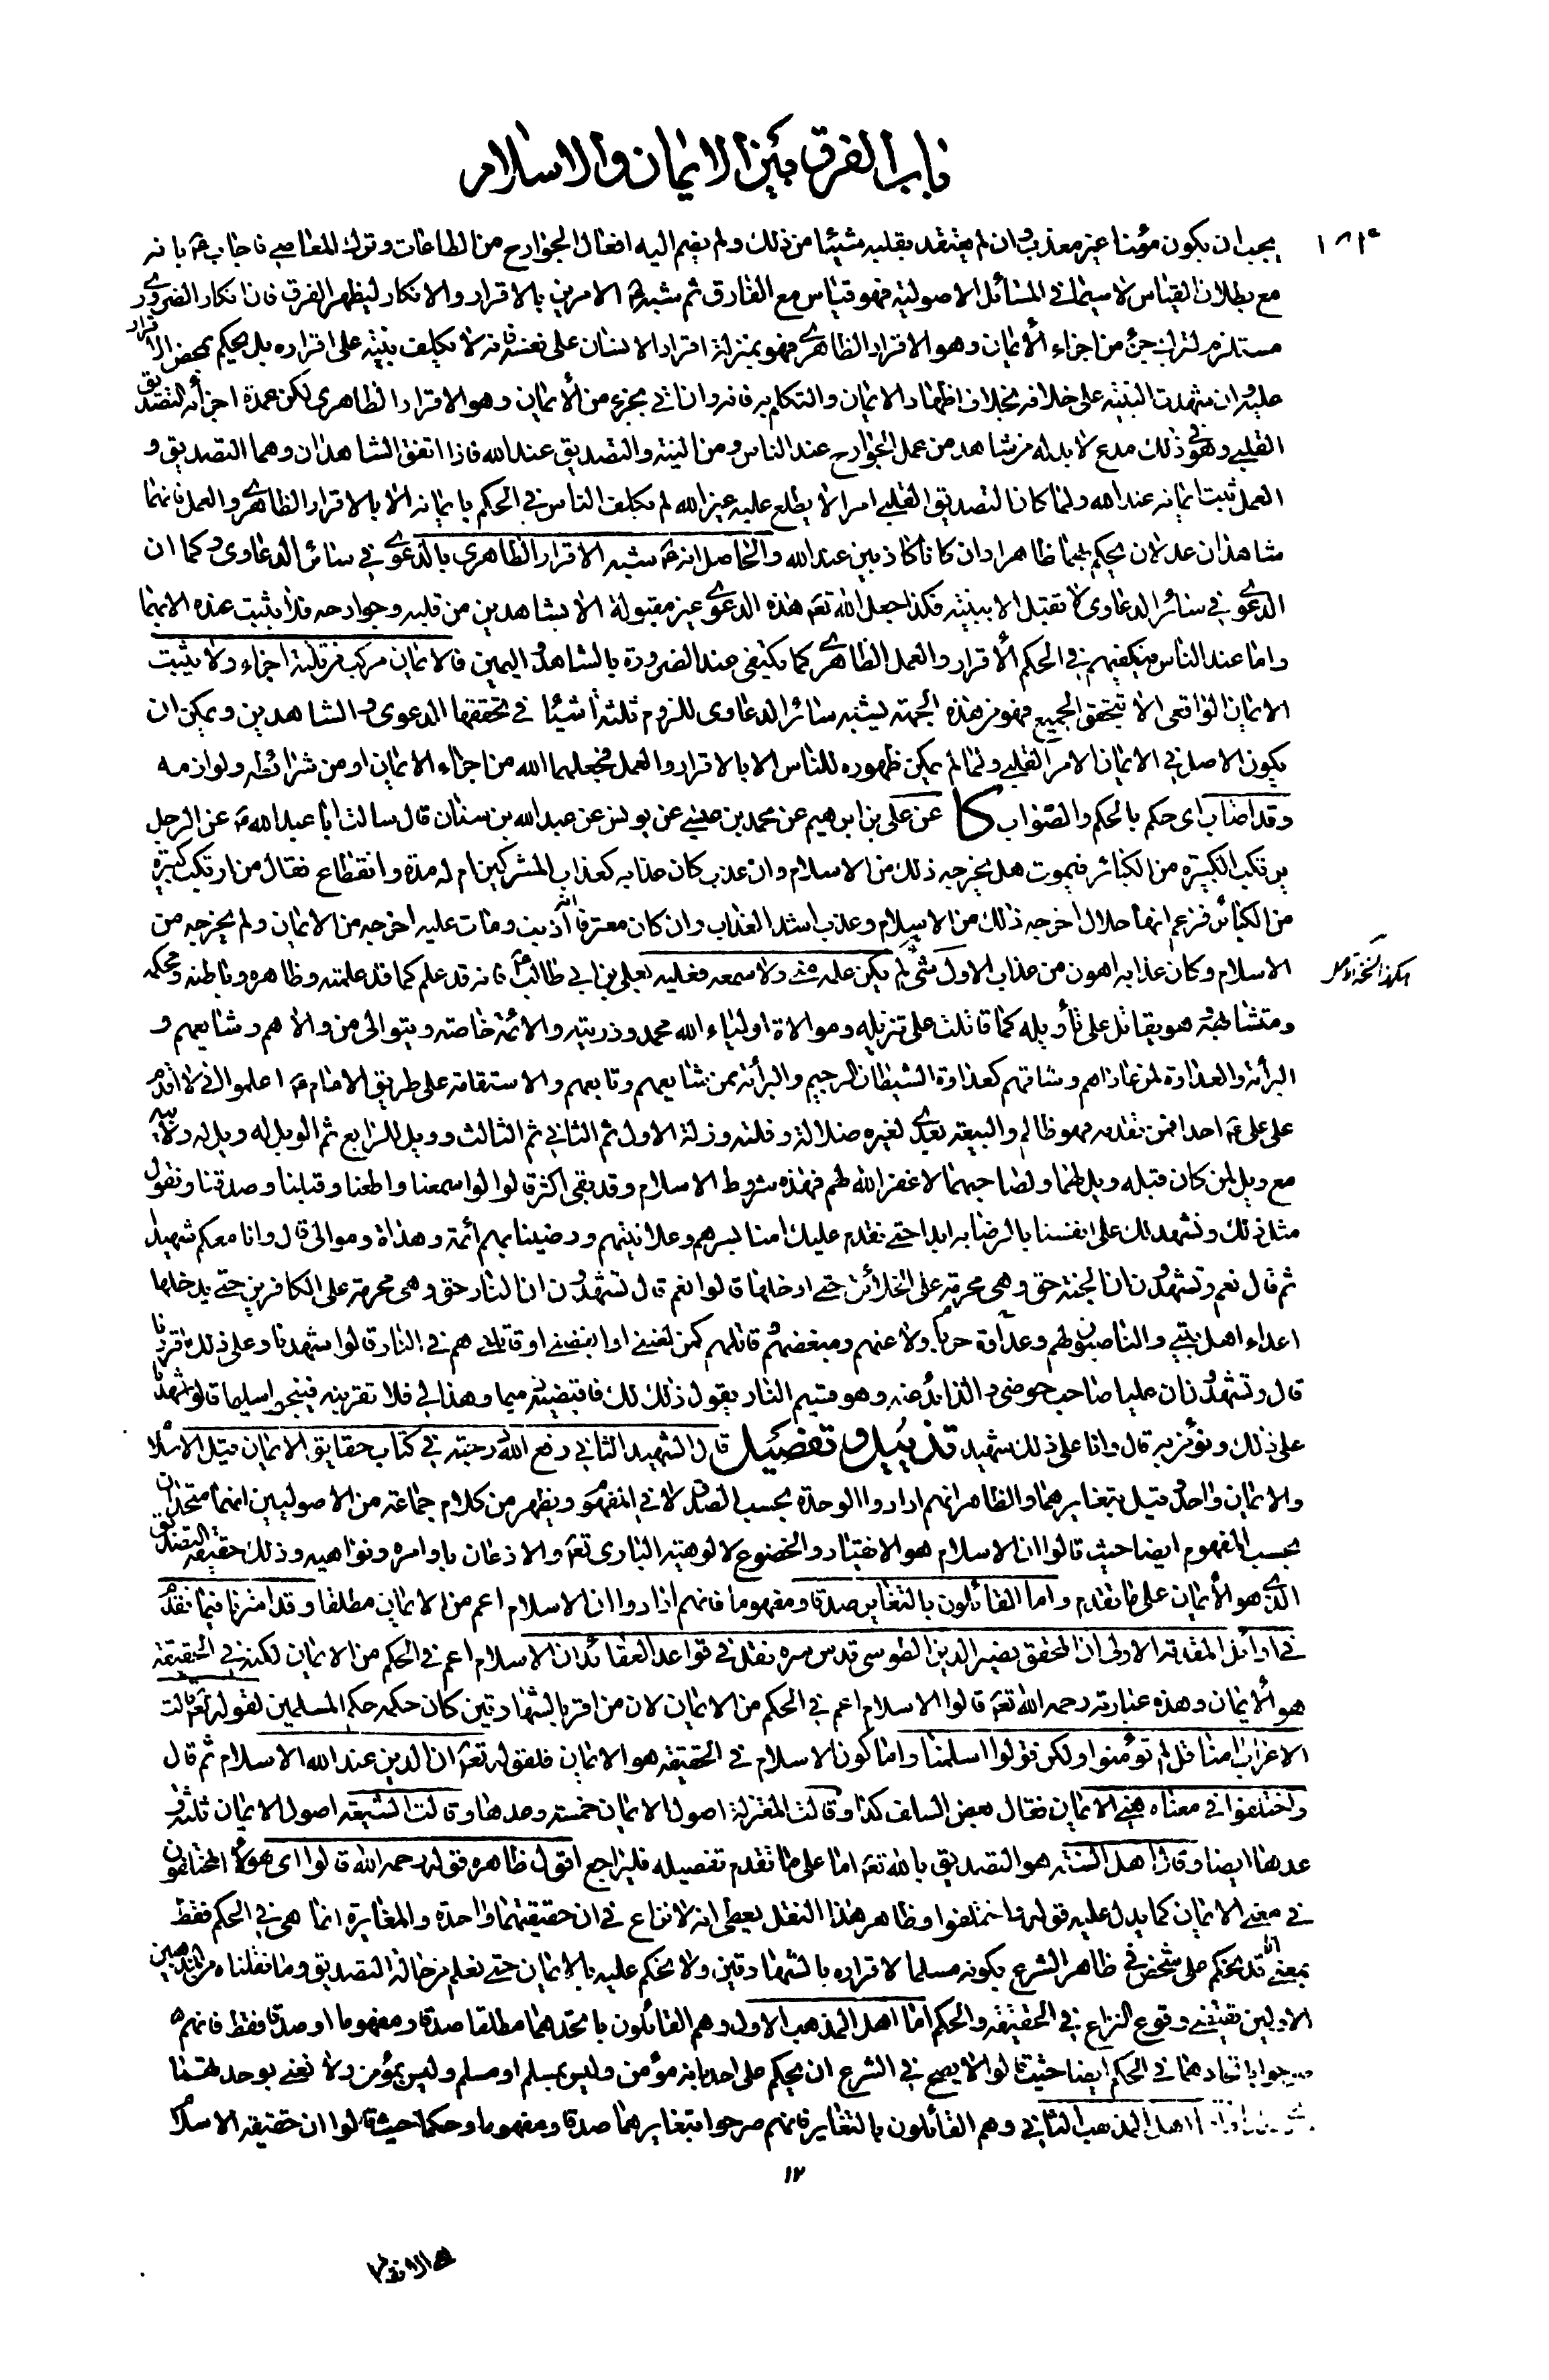 باب الفرق بين الايمان والاسلام
يجب ان يكون مؤمنا غير معذب وان لم يعتقد بقلبه شيئا من ذلك ولم يضم اليه افعال الجوارح من الطاعات وترك المعاصي فاجاب ع بانه
مع بطلان القياس لا سيما في المسائل الاصولية فهو قياس مع الفارق ثم شبه ع الامرين بالاقرار والانكار ليظهر الفرق فان انكار الضروري
مستلزم لترك جزء من اجزاء الأيمان وهو الاقرار الظاهري فهو بمنزلة اقرار الانسان على نفسه فانه لا يكلف بينة على اقراره بل يحكم بمحض الاقرار
عليه وان شهدت البينة على خلافه بخلاف اظهار الايمان والتكلم به فانه وان اتى بجزء من الأيمان وهو الاقرار الظاهري لكن عمدة اجزائه التصديق
القلبي وهو في ذلك مدع لا بد له من شاهد من عمل الجوارح عند الناس ومن النية والتصديق عند الله فاذا اتفق الشاهدان وهما التصديق و
العمل ثبت ايمانه عند الله ولما كان التصديق القلبي امرا لا يطلع عليه غير الله لم يكلف الناس في الحكم بايمانه الا بالاقرار الظاهري والعمل فانهما
شاهدان عدلان يحكم بهما ظاهرا وان كانا كاذبين عند الله والحاصل انه ع شبه الاقرار الظاهري بالدعوى في سائر الدعاوى وكما ان
الدعوى في سائر الدعاوى لا تقبل الا ببينة فكذا جعل الله تعم هذه الدعوى غير مقبولة الا بشاهدين من قلبه وجوارحه فلا يثبت عنده الا بهما
واما عند الناس فيكفيهم في الحكم الأقرار والعمل الظاهري كما يكتفى عند الضرورة بالشاهد واليمين فالايمان مركب من ثلثة اجزاء ولا يثبت
الايمان الواقعى الا بتحقق الجميع فهو من هذه الجهة يشبه سائر الدعاوى للزوم ثلثة اشياء في تحققها الدعوى والشاهدين ويمكن ان
يكون الاصل في الايمان الامر القلبي ولما لم يمكن ظهوره للناس الا بالاقرار والعمل فجعلهما الله من اجزاء الايمان او من شرائطه ولوازمه
وقد اصاب اى حكم بالحكم والصواب كا عن على بن ابرهيم عن محمد بن عيسى عن يونس عن عبد الله بن سنان قال سالت ابا عبد الله ع عن الرجل
يرتكب الكبيرة من الكبائر فيموت هل يخرجه ذلك من الاسلام وان عذب كان عذابه كعذاب المشركين ام له مدة وانقطاع فقال من ارتكب كبيرة
من الكبائر فزعم انها حلال اخرجه ذلك من الاسلام وعذب اشد العذاب وان كان معترفا انه اذنب ومات عليه اخرجه من الايمان ولم يخرجه من
الاسلام وكان عذابه اهون من عذاب الاول شئ لم يكن علمه منى ولا سمعه فعليه بعلي بن ابي طالب ع فانه قد علم كما قد علمته وظاهره وباطنه ومحكمه
ومتشابهه وهو يقاتل على تأويله كما قاتلت على تنزيله وموالاة اولياء الله محمد وذريته والائمة خاصة ويتوالى من والاهم وشايعهم و
البرائة والعداوة لمن عاداهم وشاقهم كعداوة الشيطان الرجيم والبرائة ممن شايعهم وتابعهم والاستقامة على طريق الامام ع اعلموا انى لا اقدم
على على ع احدا فمن تقدمه فهو ظالم والبيعة بعدى لغيره ضلالة وفلتة وزلة الاول ثم الثاني ثم الثالث وويل للرابع ثم الويل له ويل له ولابيه
مع ويل لمن كان قبله ويل لهما ولصاحبهما لا غفر الله لهم فهذه شروط الاسلام وقد بقى اكثر قالوا سمعنا واطعنا وقبلنا وصدقنا ونقول
مثل ذلك ونشهد لك على انفسنا بالرضا به ابدا حتى نقدم عليك امنا بسرهم وعلانيتهم ورضينا بهم ائمة وهداة وموالى قال وانا معكم شهيد
ثم قال نعم وتشهدون ان الجنة حق وهى محرمة على الخلائق حتى ادخلها قالوا نعم قال تشهدون ان النار حق وهى محرمة على الكافرين حتى يدخلها
اعداء اهل بيتي والناصبون لهم وعداوة حربا ولاعنهم ومبغضهم وقاتلهم كمن لعننى او ابغضنى او قاتلنى هم في النار قالوا شهدنا وعلى ذلك اقررنا
قال وتشهدون ان عليا صاحب حوضى والذائد عنه وهو قسيم النار يقول ذلك لك فاقبضيه ذميما وهذا لي فلا تقربنه فينجو سليما قالوا شهدنا
على ذلك ونؤمن به قال وانا على ذلك شهيد تذييل وتفصيل قال الشهيد الثاني رفع الله درجته في كتاب حقايق الايمان قيل الاسلام
والايمان واحد وقيل بتغايرهما والظاهر انهم ارادوا الوحدة بحسب الصدق لا في المفهوم ويظهر من كلام جماعة من الاصوليين انهما متحدان
بحسب المفهوم ايضا حيث قالوا ان الاسلام هو الانقياد والخضوع لالوهية البارى تعم والاذعان باوامره ونواهيه وذلك حقيقة التصديق
الذي هو الأيمان على ما تقدم واما القائلون بالتغاير صدقا ومفهوما فانهم ارادوا ان الاسلام اعم من الايمان مطلقا وقد اشرنا فيما تقدم
في اوائل المقدمة الاولى ان المحقق نصير الدين الطوسى قدس سره نقل في قواعد العقائد ان الاسلام اعم في الحكم من الايمان لكنه في الحقيقة
هو الأيمان وهذه عبارته رحمه الله تعم قالوا الاسلام اعم في الحكم من الايمان لان من اقر بالشهادتين كان حكمه حكم المسلمين لقوله تعم قالت
الاعراب امنا قل لم تؤمنوا ولكن قولوا اسلمنا واما كون الاسلام في الحقيقة هو الايمان فلقوله تعم ان الدين عند الله الاسلام ثم قال
واختلفوا في معناه يعنى الايمان فقال بعض السلف كذا وقالت المعتزلة اصول الايمان خمسة وعدها وقالت الشيعة اصول الايمان ثلثة و
عدها ايضا وقال اهل السنة هو التصديق بالله تعم اما على ما تقدم تفصيله فليراجع اقول ظاهر قوله رحمه الله قالوا اى هؤلاء المختلفون
في معنى الايمان كما يدل عليه قوله واختلفوا وظاهر هذا النقل يعطى انه لا نزاع في ان حقيقتهما واحدة والمغايرة انما هى في الحكم فقط
بمعنى انا قد نحكم على شخص في ظاهر الشرع بكونه مسلما لاقراره بالشهادتين ولا نحكم عليه بالايمان حتى نعلم من حاله التصديق وما نقلناه من المذهبين
الاولين يقتضى وقوع النزاع في الحقيقة والحكم اما اهل المذهب الاول وهم القائلون باتحدهما مطلقا صدقا ومفهوما او صدقا فقط فانهم
صرحوا باتحادهما في الحكم ايضا حيث قالوا لا يصح في الشرع ان يحكم على احد بانه مؤمن وليس بمسلم او مسلم وليس بمؤمن ولا نعنى بوحدتهما
اهل المذهب الثاني وهم القائلون بالتغاير فانهم صرحوا بتغايرهما صدقا ومفهوما وحكما حيث قالوا ان حقيقة الاسلام
١٢